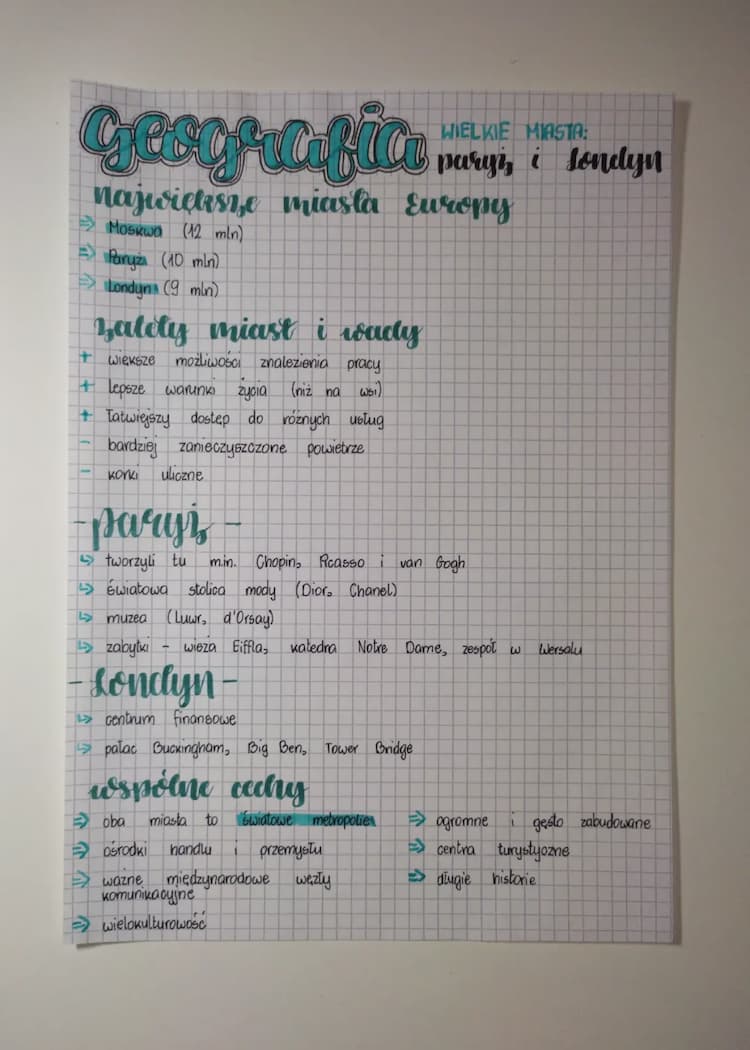 Geografia
WIELKIE MIASTA:
paryż i Londyn
największe miasta Europy
⇒ Moskwa (12 mln)
⇒ Paryż (10 mln)
⇒ Londyn (9 mln)
zalety miast i wady
+ większe możliwości znalezienia pracy
+ lepsze warunki życia (niż na wsi)
+ łatwiejszy dostęp do różnych usług
- bardziej zanieczyszczone powietrze
- korki uliczne
- paryż -
↳ tworzyli tu m.in. Chopin, Picasso i van Gogh
↳ światowa stolica mody (Dior, Chanel)
↳ muzea (Luwr, d'Orsay)
↳ zabytki - wieża Eiffla, katedra Notre Dame, zespół w Wersalu
- Londyn -
↳ centrum finansowe
↳ pałac Buckingham, Big Ben, Tower Bridge
wspólne cechy
⇒ oba miasta to światowe metropolie
⇒ ośrodki handlu i przemysłu
⇒ ważne międzynarodowe węzły
komunikacyjne
⇒ wielokulturowość
⇒ ogromne i gęsto zabudowane
⇒ centra turystyczne
⇒ długie historie